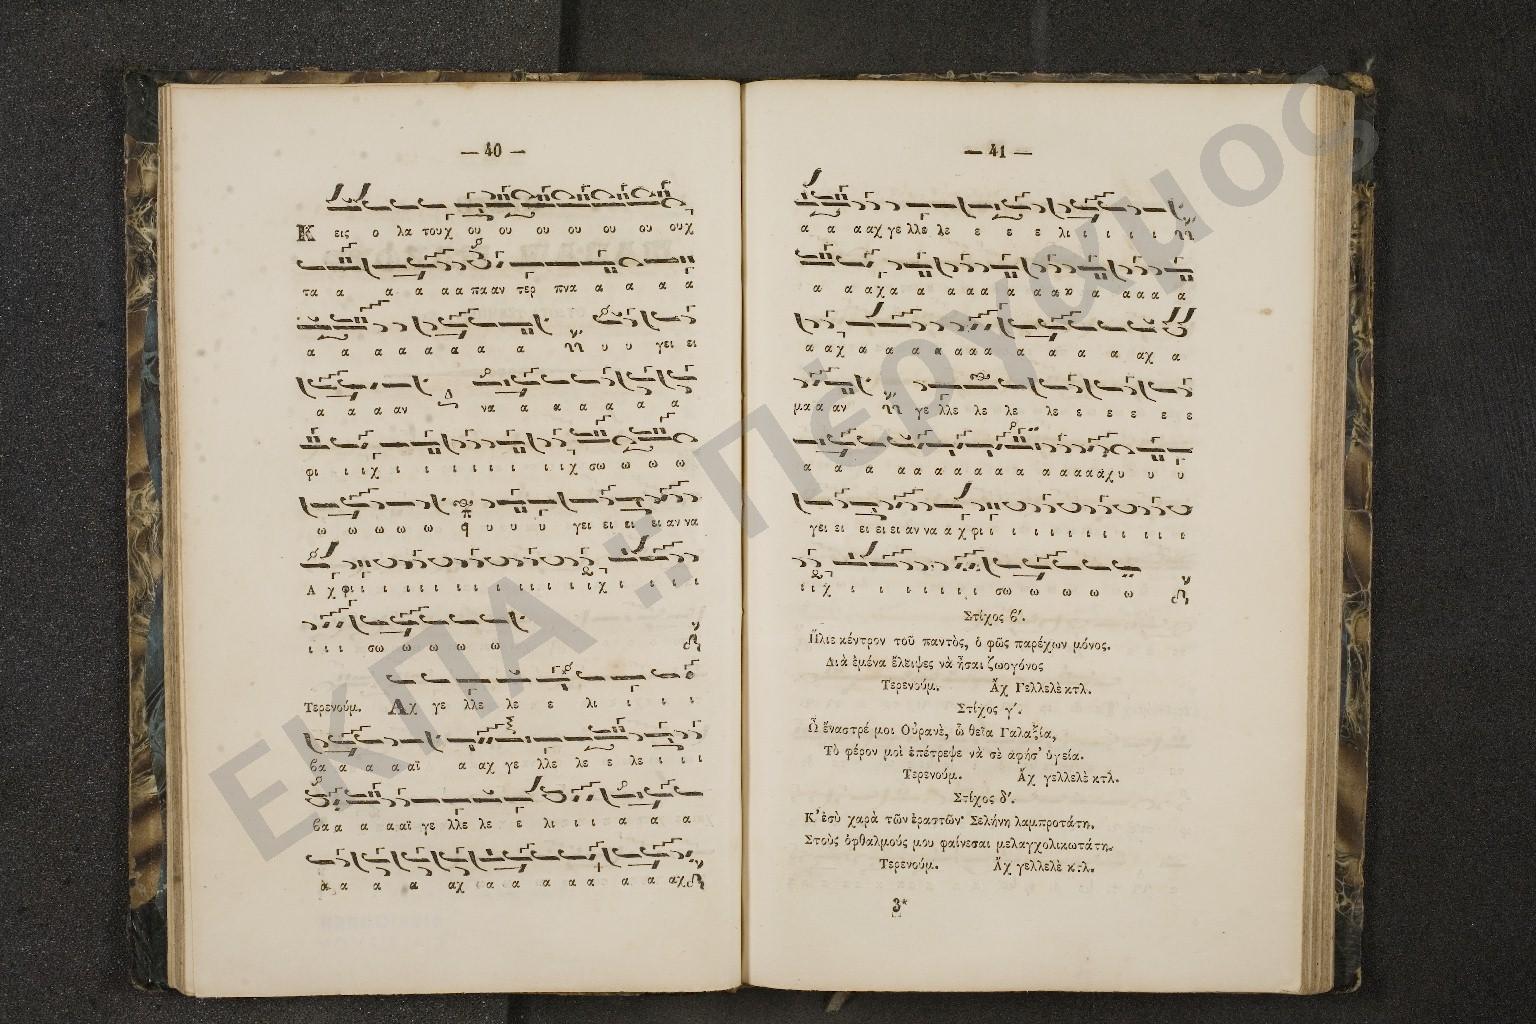 — 40 —
Κ εις ο λα τουχ ου ου ου ου ου ου ουχ
τα α α α α α πα αν περ πνα α α α α
α α α α α α α α υ υ γει ει
α α α αν να α α α α α α
φι ι ι χ ι ι ι ι ι ι ι χ σω ω ω ω
ω ω ω ω ω υ υ υ γει ει ει ει αν να
Α χ φι ι ι ι ι ι ι ι ι ι ι ι ι χ ι ι ι ι
ι ι ι σω ω ω ω ω
Τερενούμ. Αχ γε λλε λε ε λι ι ι ι
βα α α α αϊ α αχ γε λλε λε ε λε ι ι ι
βα α α α αϊ γε λλε λε ε λι ι ι α α α
α α α α αχ α α α α α α α αχ
— 41 —
α α α αχ γε λλε λε ε ε ε λι ι ι ι ι
α α α χ α α α α α α α α α α α α
α α χ α α α α α α α α α α α αχ α
μα α αν γε λλε λε λε λε ε ε ε ε ε
α α α α α α α α α α α α α α χ υ υ υ
γει ει ει ει ει αν να α χ φι ι ι ι ι ι ι ι ι ι ι ι
ι ι χ ι ι ι ι ι ι σω ω ω ω ω
Στίχος β΄.
Ἥλιε κέντρον τοῦ παντὸς, ὁ φῶς παρέχων μόνος.
Διὰ ἐμένα ἔλειψες νὰ ἦσαι ζωογόνος
Τερενούμ. Ἂχ Γελλελὲ κτλ.
Στίχος γ΄.
Ὦ ἔναστρέ μοι Οὐρανὲ, ὦ θεῖα Γαλαξία,
Τὸ φέρον μοὶ ἐπέτρεψε νὰ σὲ ἀφήσ' ὑγεία.
Τερενούμ. Ἂχ γελλελὲ κτλ.
Στίχος δ΄.
Κ' ἐσὺ χαρὰ τῶν ἐραστῶν· Σελήνη λαμπροτάτη.
Στοὺς ὀφθαλμούς μου φαίνεσαι μελαγχολικωτάτη.
Τερενούμ. Ἂχ γελλελὲ κτλ.
3*
ΕΚΠΑ :: Πέργαμος